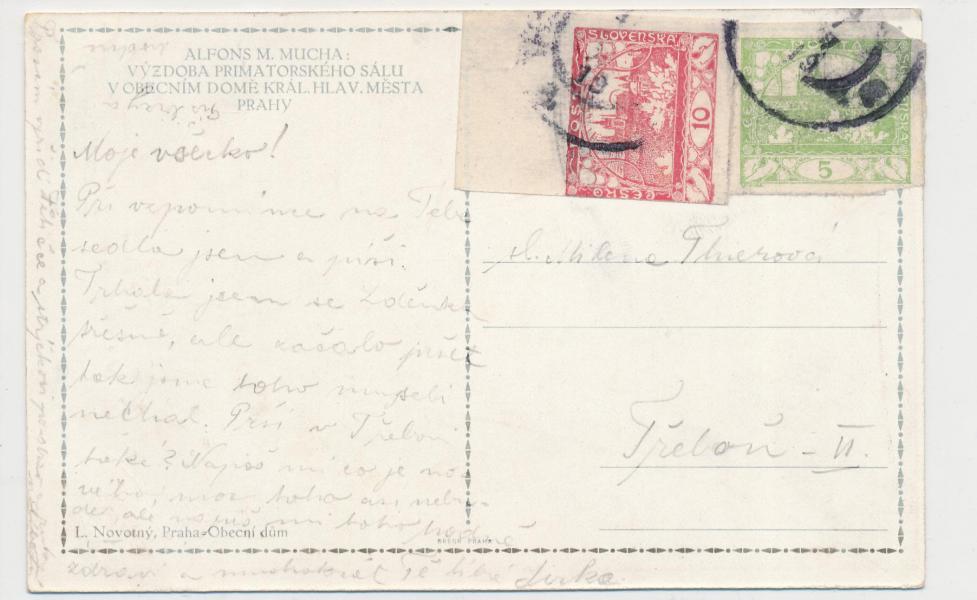 ALFONS M. MUCHA:
VÝZDOBA PRIMATORSKÉHO SÁLU
V OBECNÍM DOMĚ KRÁL. HLAV. MĚSTA
PRAHY
Moje všecko!
Při vzpomínce na Tebe
sedla jsem a píši.
Trhala jsem se Zdenkou
třešně, ale začalo pršet
tak jsme toho museli
nechat. Prší v Třeboni
také? Napiš mi co je no-
vého, moc toho asi nebu-
de, ale napiš mi toho hodně
L. Novotný, Praha-Obecní dům
zdraví a mnohokrát Tě líbá Jirka.
ČESKO-SLOVENSKÁ
10
POŠTA
5
sl. Milena Thierová
Třeboň - II.